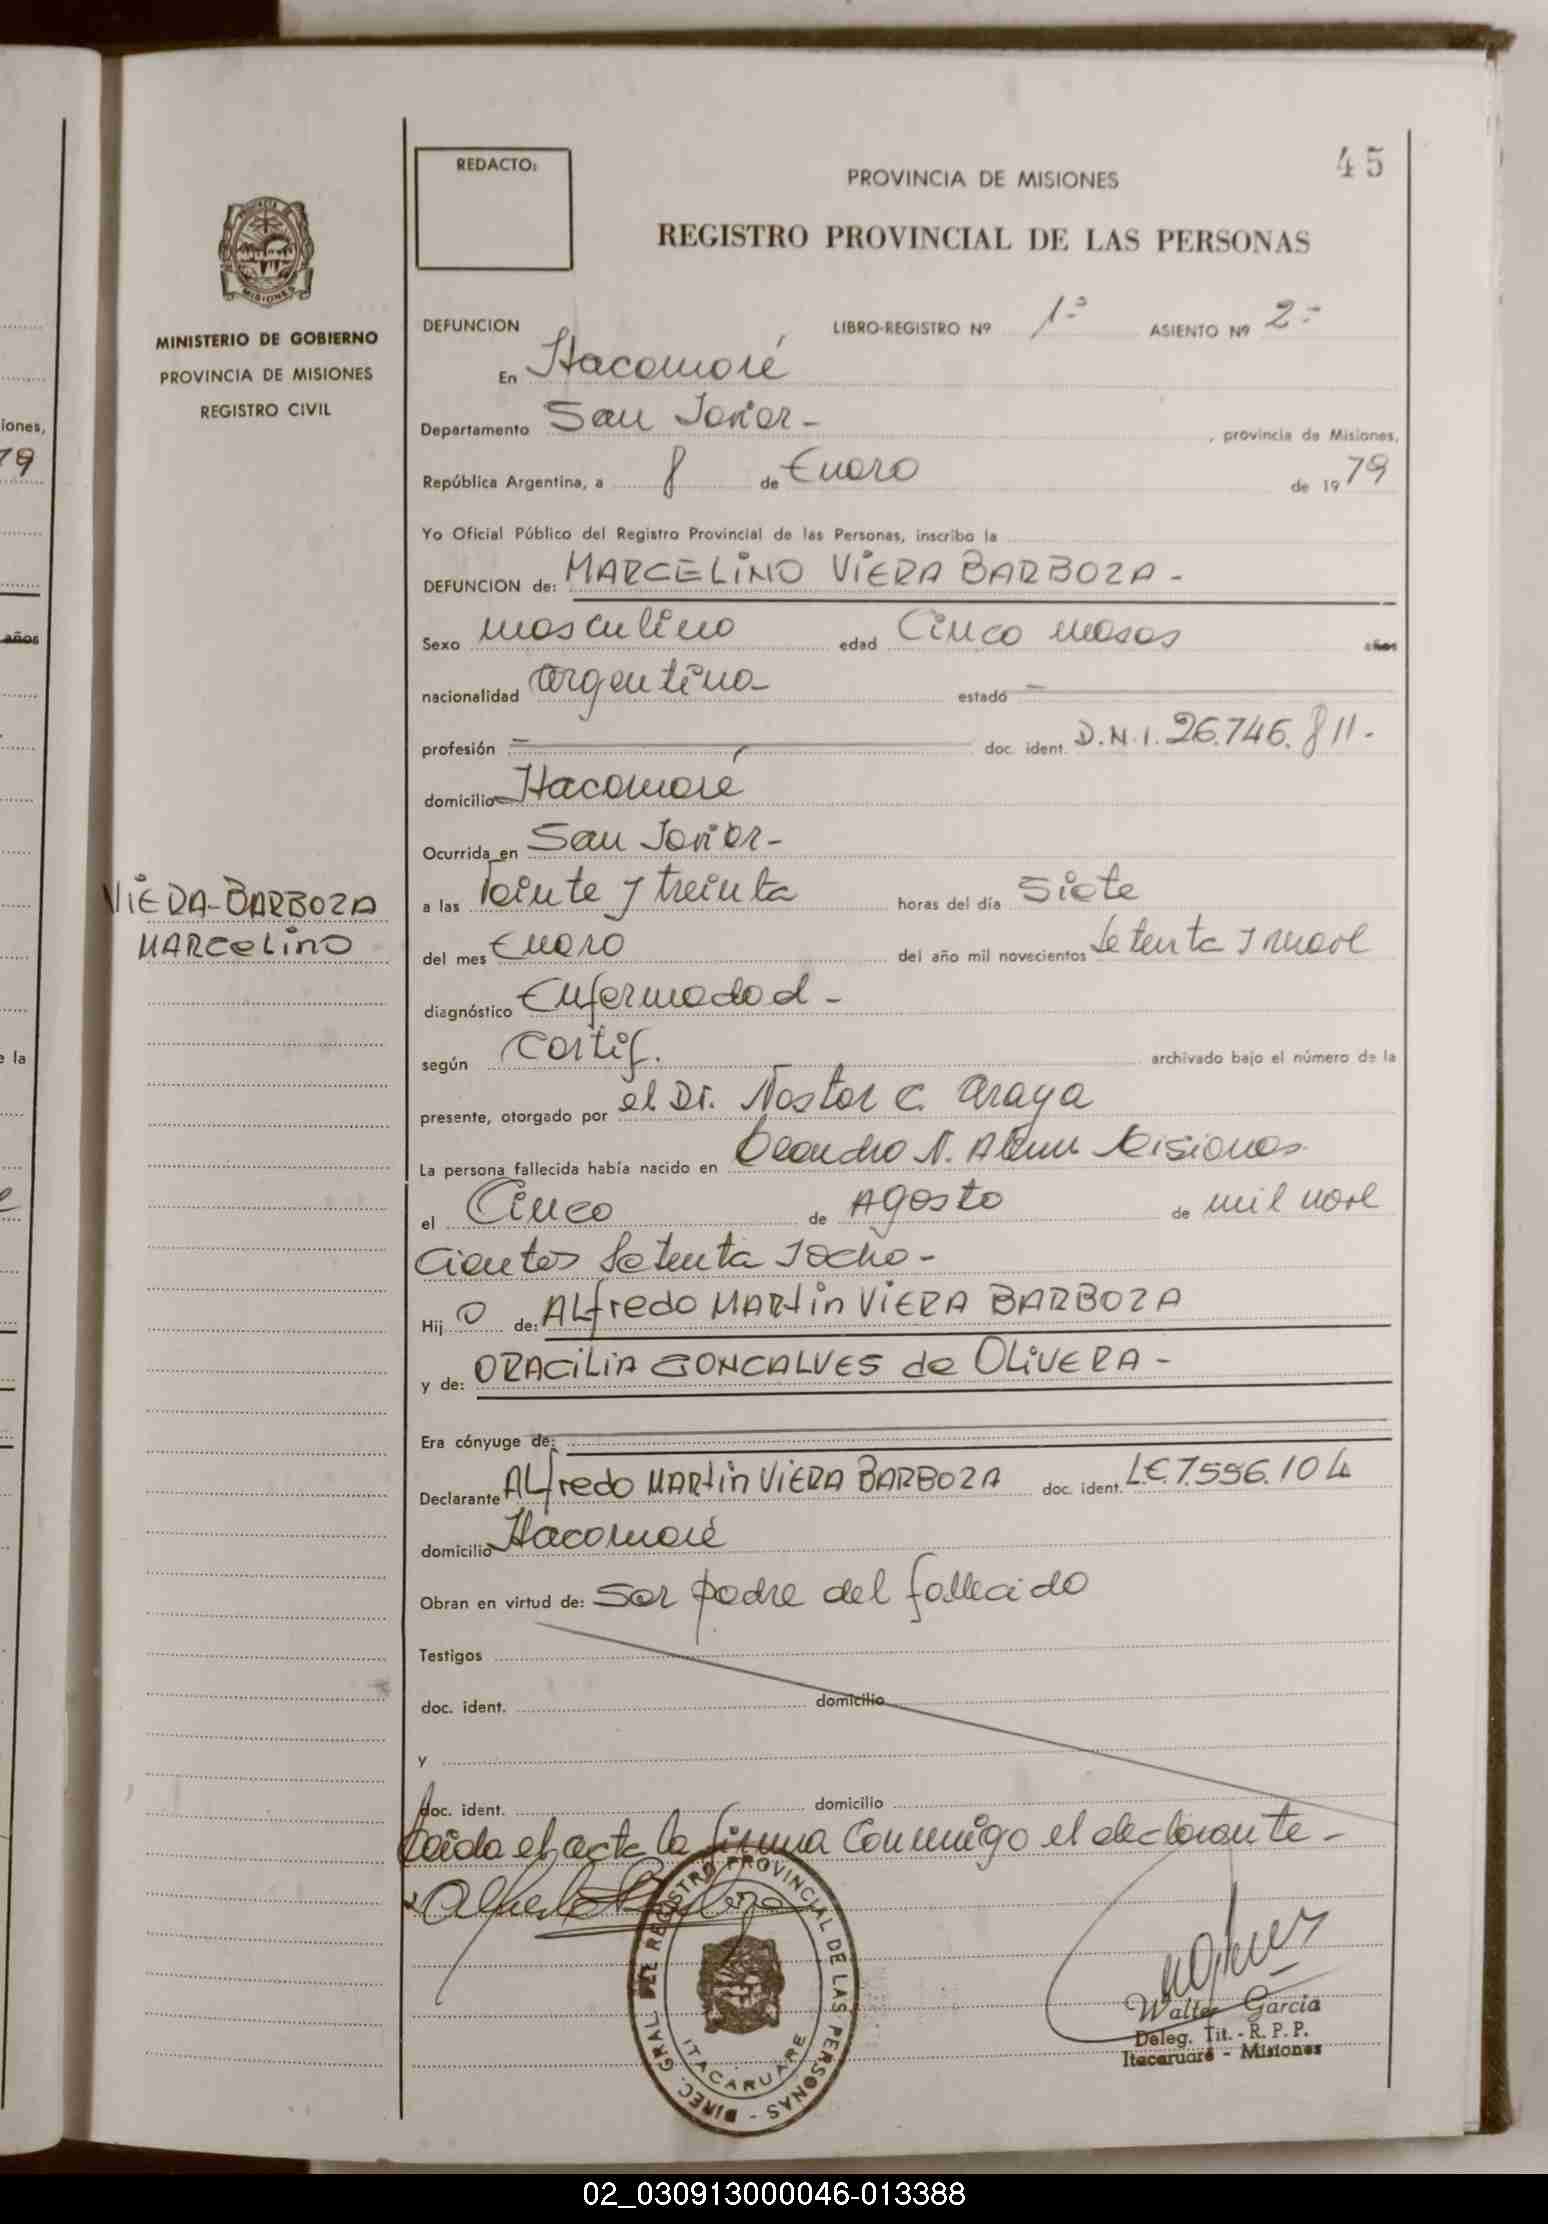 45
REDACTO:
PROVINCIA DE MISIONES
REGISTRO PROVINCIAL DE LAS PERSONAS
MINISTERIO DE GOBIERNO
PROVINCIA DE MISIONES
REGISTRO CIVIL
DEFUNCION LIBRO-REGISTRO Nº 1º ASIENTO Nº 2-
En Itacaruaré
Departamento San Javier - , provincia de Misiones,
República Argentina, a 8 de Enero de 1979
Yo Oficial Público del Registro Provincial de las Personas, inscribo la
DEFUNCION de: MARCELINO VIERA BARBOZA -
Sexo masculino edad Cinco meses años
nacionalidad argentina - estado -
profesión - doc. ident. D.N.I. 26.746.811.-
domicilio Itacaruaré
Ocurrida en San Javier -
VIERA-BARBOZA
MARCELINO
a las Veinte y treinta horas del día Siete
del mes Enero del año mil novecientos Setenta y nueve
diagnóstico Enfermedad -
según Certif. archivado bajo el número de la
presente, otorgado por el Dr. Nestor C. Araya
La persona fallecida había nacido en Leandro N. Alem Misiones
el Cinco de Agosto de mil nove
cientos Setenta y ocho -
Hijo de: ALfredo MARtin VIERA BARBOZA
y de: ORACILIA GONCALVES de OLIVERA -
Era cónyuge de:
Declarante ALfredo MARtin VIERA BARBOZA doc. ident. L.E. 7.556.104
domicilio Itacaruaré
Obran en virtud de: Ser padre del fallecido
Testigos
doc. ident. domicilio
y
doc. ident. domicilio
Leida el acta la firma Conmigo el declarante -
DIREC. GRAL. DEL REGISTRO PROVINCIAL DE LAS PERSONAS -
ITACARUARE
Walter Garcia
Deleg. Tit. - R. P. P.
Itacaruaré - Misiones
iones,
79
años
e la
02_030913000046-013388